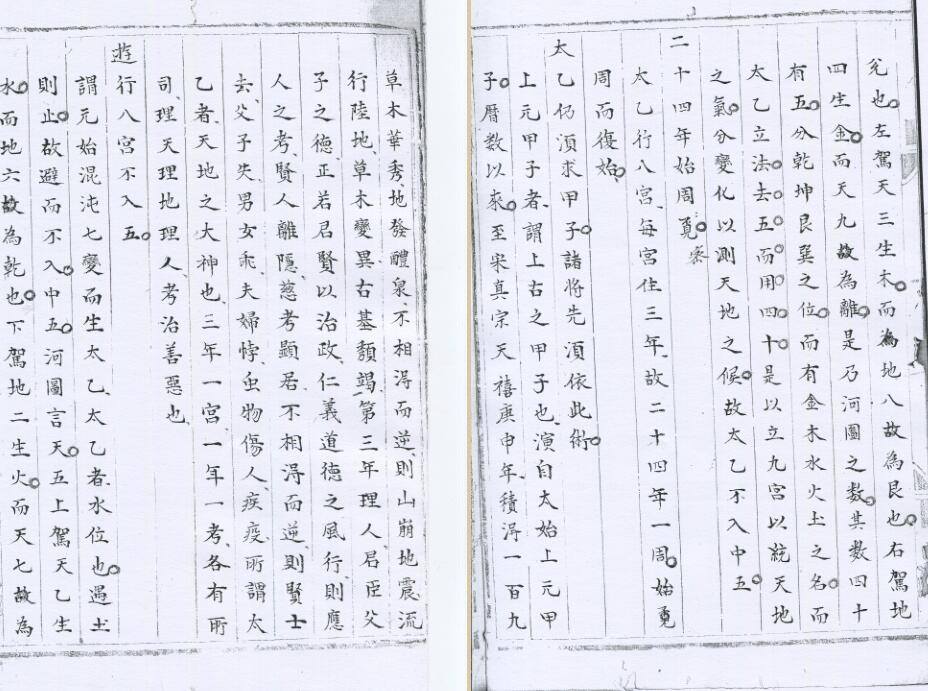 草木華秀、地發醴泉、不相淂而逆、則山崩地震、流
行陸地、草木變異、古墓頽竭、第三年理人、君臣父
子之德、正若君賢以治政、仁義道德之風行、則應
人之考、賢人離隱、慈考顯居、不相淂而逆、則賢士
去、父子失、男女乖、夫婦悖、虫物傷人、疾疫、所謂太
乙者、天地之大神也、三年一宮、一年一考、各有所
司、理天理地理人、考治善惡也、
遊行八宮不入五。
謂元始混沌七變而生太乙、太乙者水位也。遇土
則止。故避而不入。中五。河圖言天。五上駕天乙生
水。而地六故為乾也。下駕地二生火。而天七故為
兊也。左駕天三生木。而為地八故為艮也。右駕地
四生金。而天九故為離。是乃河圖之数。其数四十
有五。分乾坤艮巽之位。而有金木水火土之名。而
太乙立法。去。五。而。用。四。十。是以立九宮以統天地
之氣。分變化以測天地之候。故太乙不入中五。
二十四年始周覔。
太乙行八宮、每宮住三年、故二十四年一周。始覔
周而復始。
太乙仍湏求甲子。諸將先湏依此術。
上元甲子者、謂上古之甲子也、演自太始上元甲
子。曆数以來。至宋真宗天禧庚申年、積淂一百九